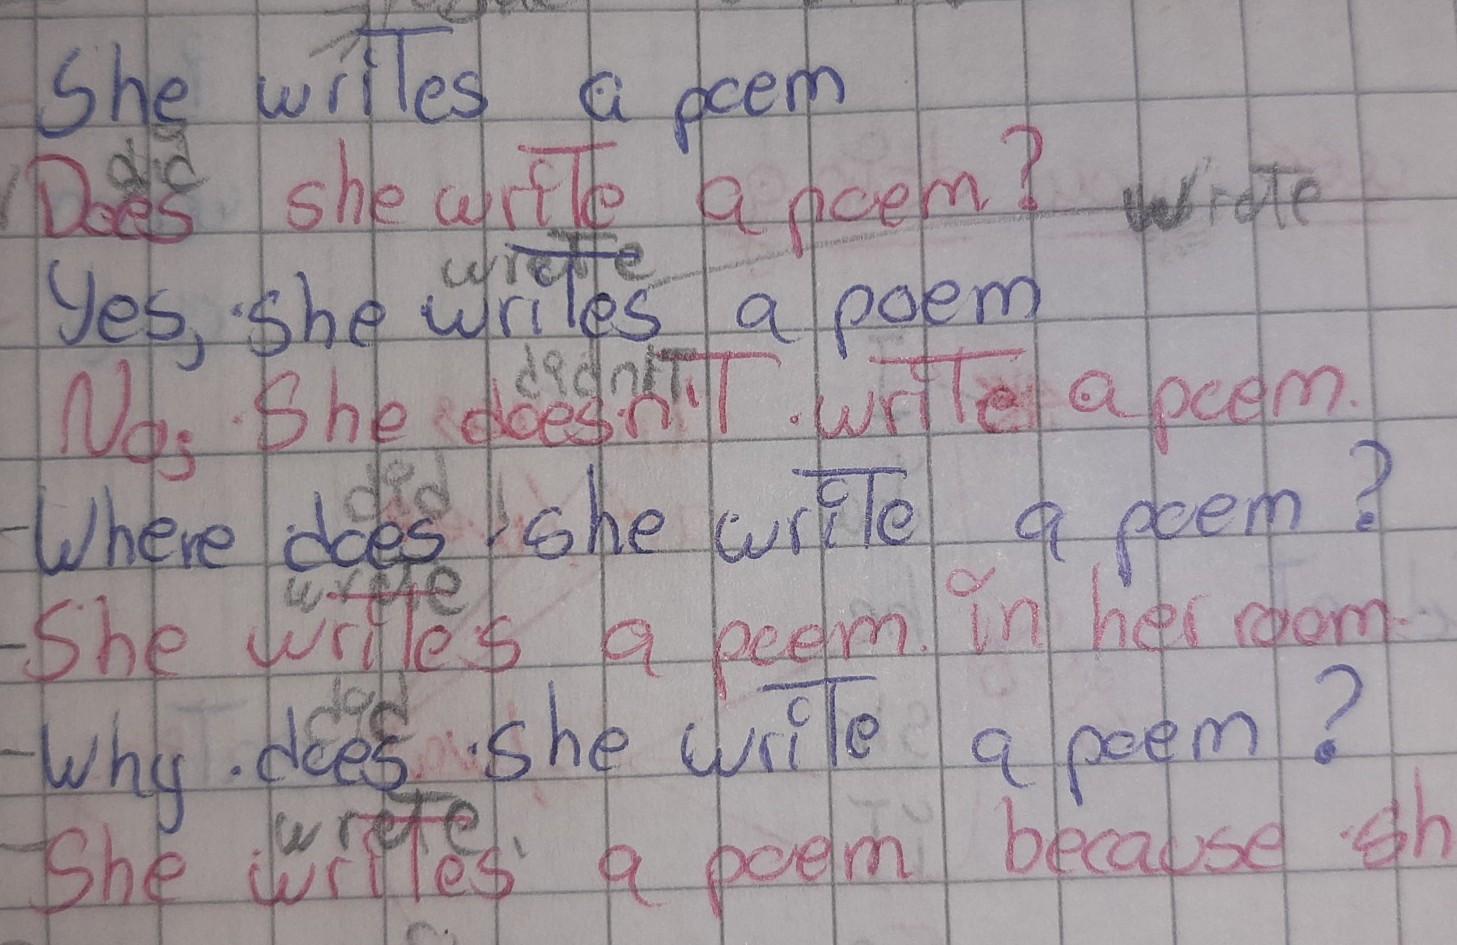 She writes a poem
did
Does she write a poem? wrote
wrote
Yes, she writes a poem
didn't
No, She doesn't write a poem.
did
-Where does she write a poem?
wrote
-She writes a poem in her room.
did
-Why does she write a poem?
wrote
-She writes a poem because sh